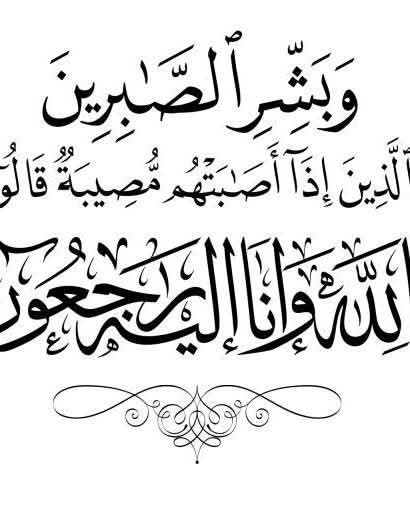 وَبَشِّرِ ٱلصَّٰبِرِينَ
ٱلَّذِينَ إِذَآ أَصَٰبَتْهُم مُّصِيبَةٌ قَالُو
لله وَإنا إليه راجعون